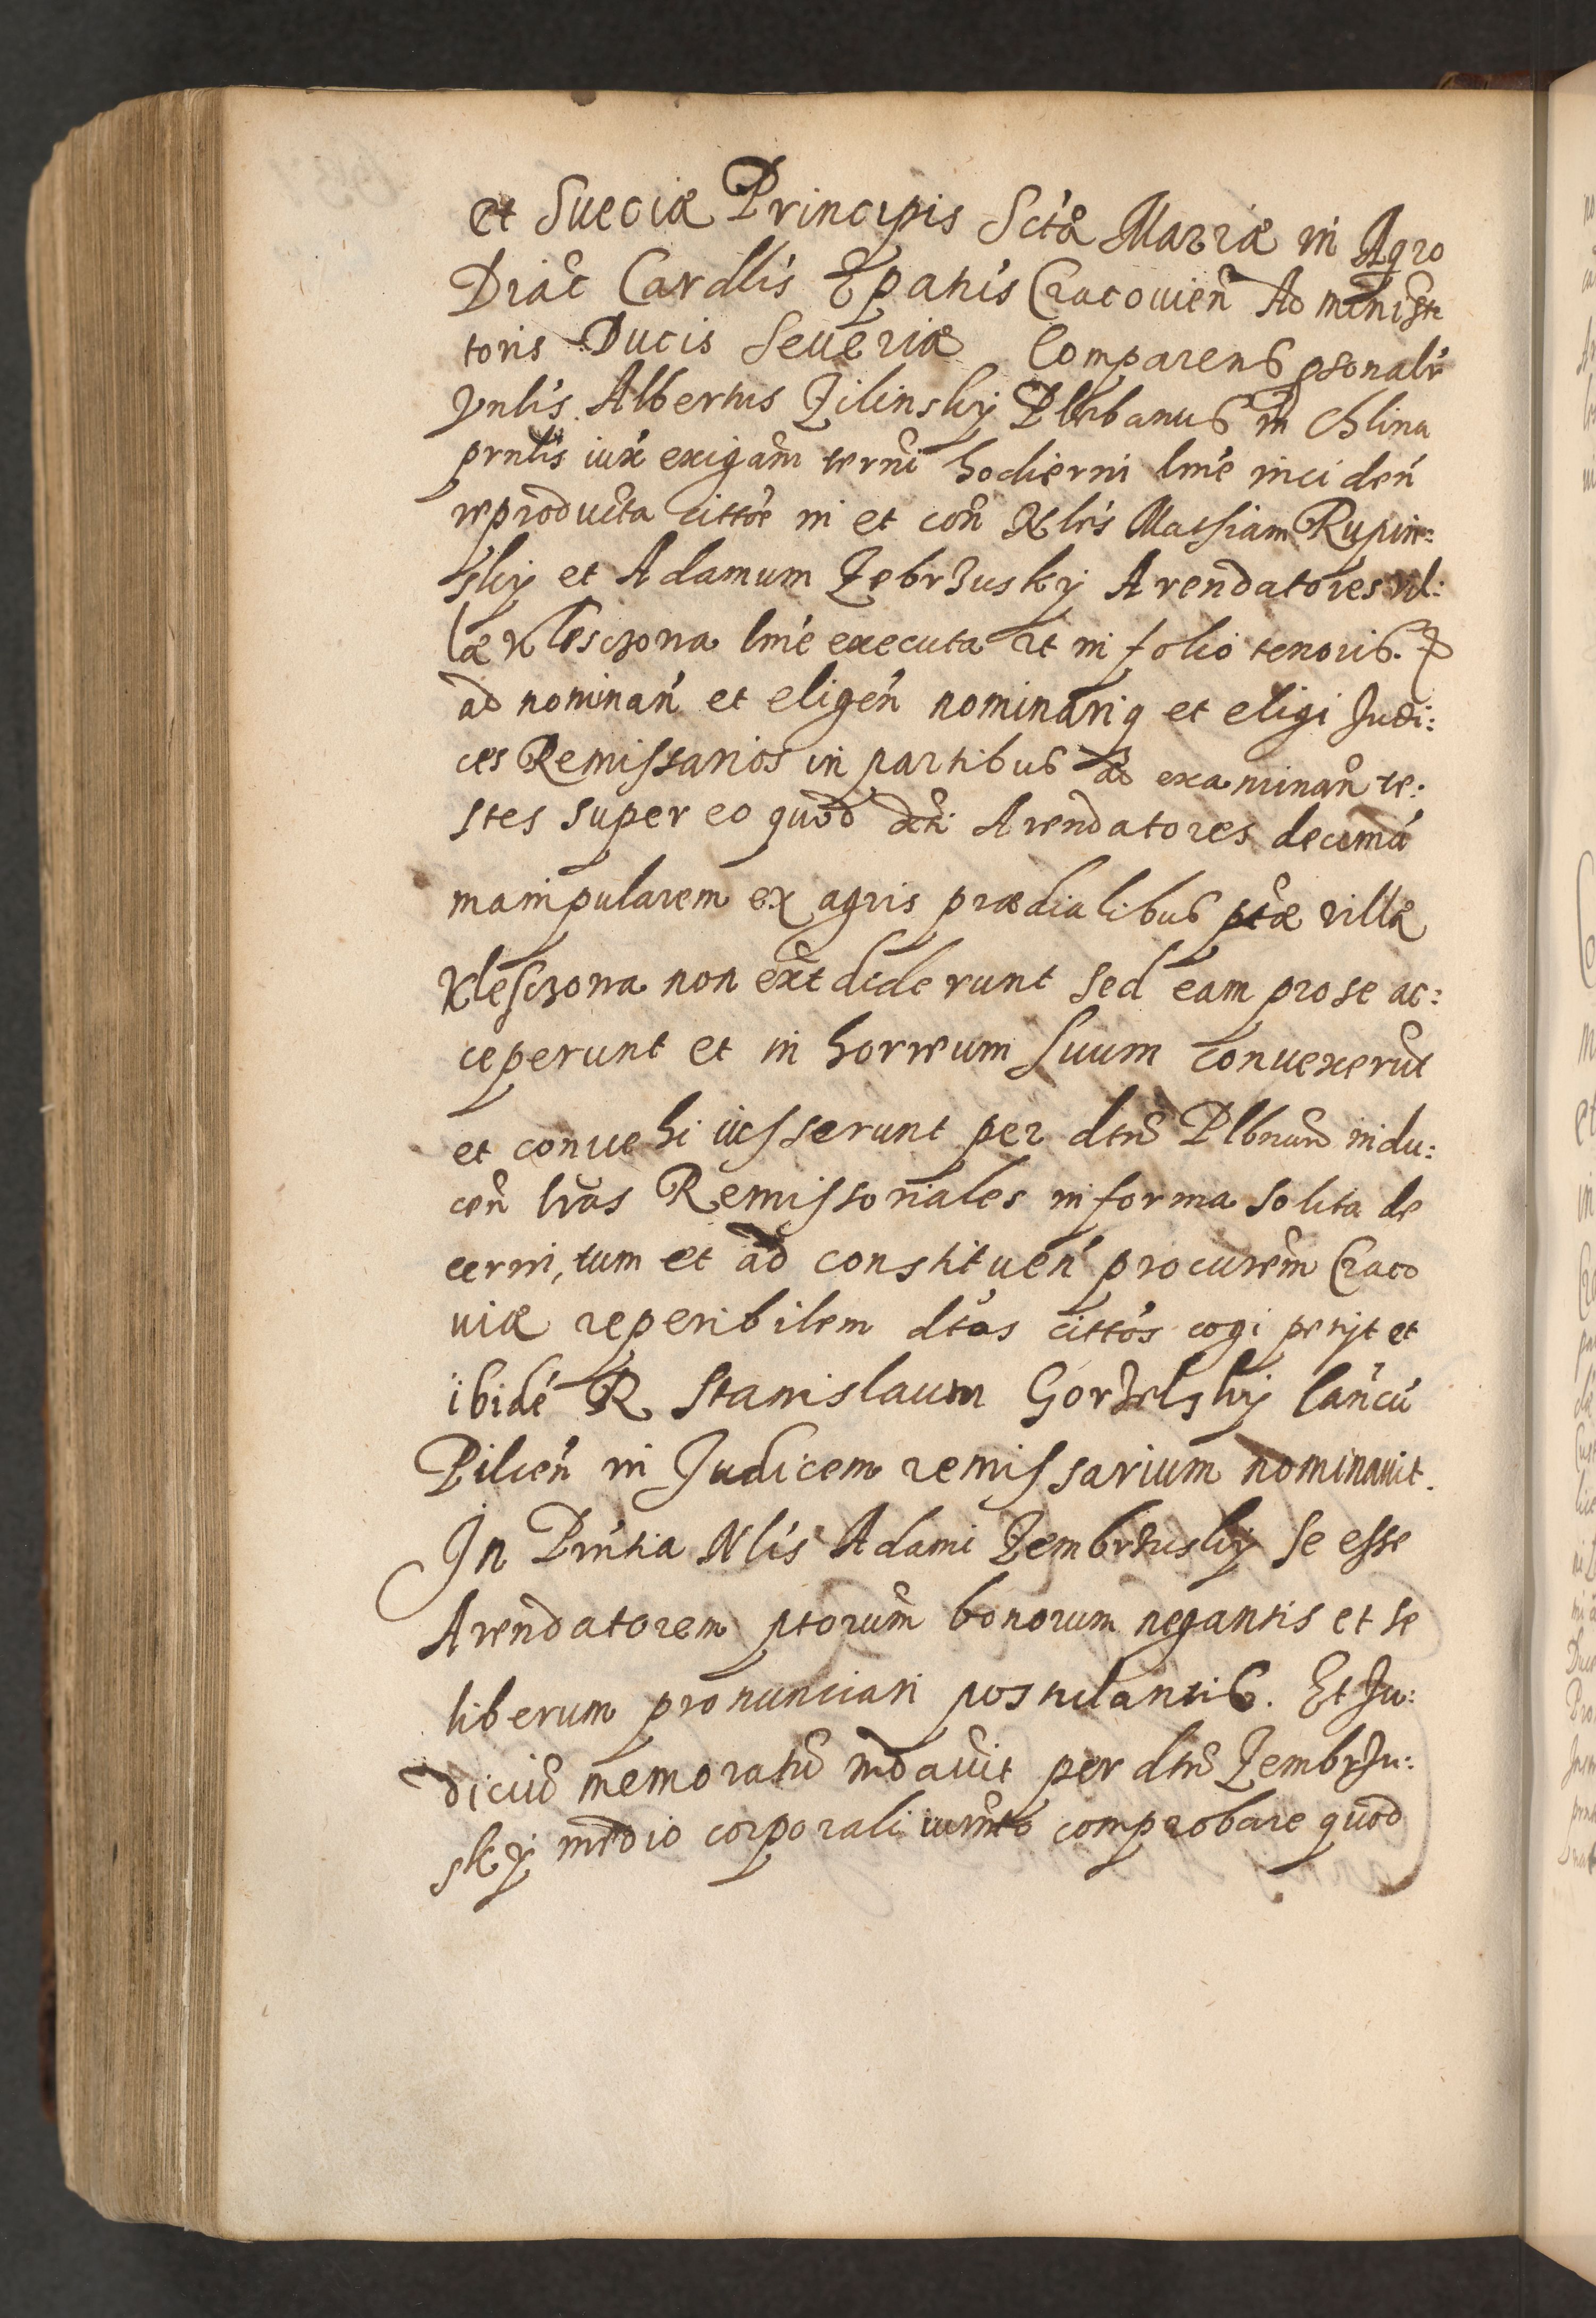 et Sueciæ Principis Sctæ Mariæ in Agro
Diac Cardlis Epatus Cracouien Administra
toris Ducis Seueriæ Comparens psonalr
Vnlis Albertus Zilinsky Plebanus in Chlina
prntis iux exigam termi hodierni lme inciden
reproducta cittõe in et con Nles Mathiam Rupin=
sky et Adamum Zebrzusky Arendatores vil:
læ Klesczona lme executa ut in folio tenoris.
ad nominan et eligen nominariq et eligi Judi:
ces Remissarios in partibus ad examinan te:
stes super eo quod dcti Arendatores decimá
manipularem ex agris prædialibus ptæ villæ
Klesczona non extdiderunt sed eam pro se ac:
ceperunt et in horreum suum conuexerut
et conuehi iusserunt per dtm Plbnum indu:
cen lras Remissoriales in forma solita de
cerni, tum et ad constituen procurem Craco
uiæ reperibilem dtos cittos cogi petijt et
ibidé R Stanislaum Gorzelsky Cancú
Pilcen in Judicem remissarium nominauit.
In Prntia Nlis Adami Zembrzusky se esse
Arendatorem ptorum bonorum negantis et se
liberum pronunciari postulantis. Et Ju:
diciu memoratu mdauit per dtm Zembrzu:
sky medio corporali iurmto comprobare quod